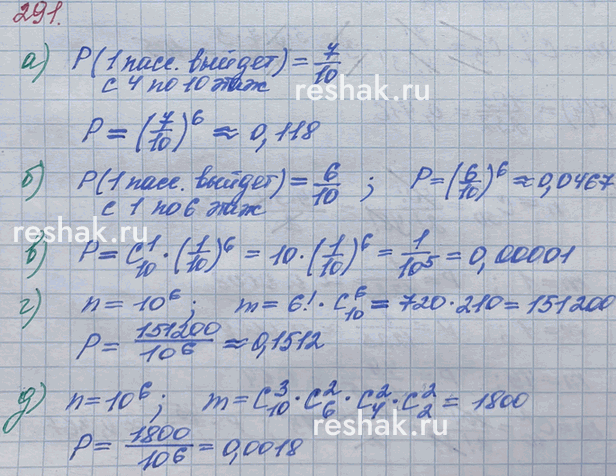 291.
а) P(1 пасс. выйдет) = 7/10
с 4 по 10 этаж
reshak.ru
P = (7/10)^6 ≈ 0,118
б) P(1 пасс. выйдет) = 6/10 ; P = (6/10)^6 ≈ 0,0467
с 1 по 6 этаж
reshak.ru
в) P = C^1_10 · (1/10)^6 = 10 · (1/10)^6 = 1/10^5 = 0,00001
г) n = 10^6 ; m = 6! · C^6_10 = 720 · 210 = 151200
P = 151200/10^6 ≈ 0,1512
reshak.ru
д) n = 10^6 ; m = C^3_10 · C^2_6 · C^2_4 · C^2_2 = 1800
P = 1800/10^6 = 0,0018
reshak.ru